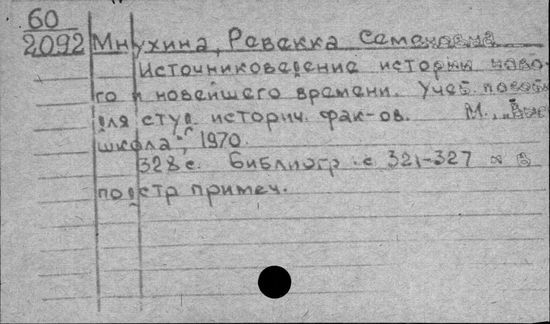 60
2092 Мнухина, Ревекка Семеновна
Источниковедение истории ново-
го и новейшего времени. Учеб. пособ
для студ. историч. фак-ов. М., „Выс
школа", 1970.
328 с. Библиогр. с. 321-327 и в
подстр примеч.